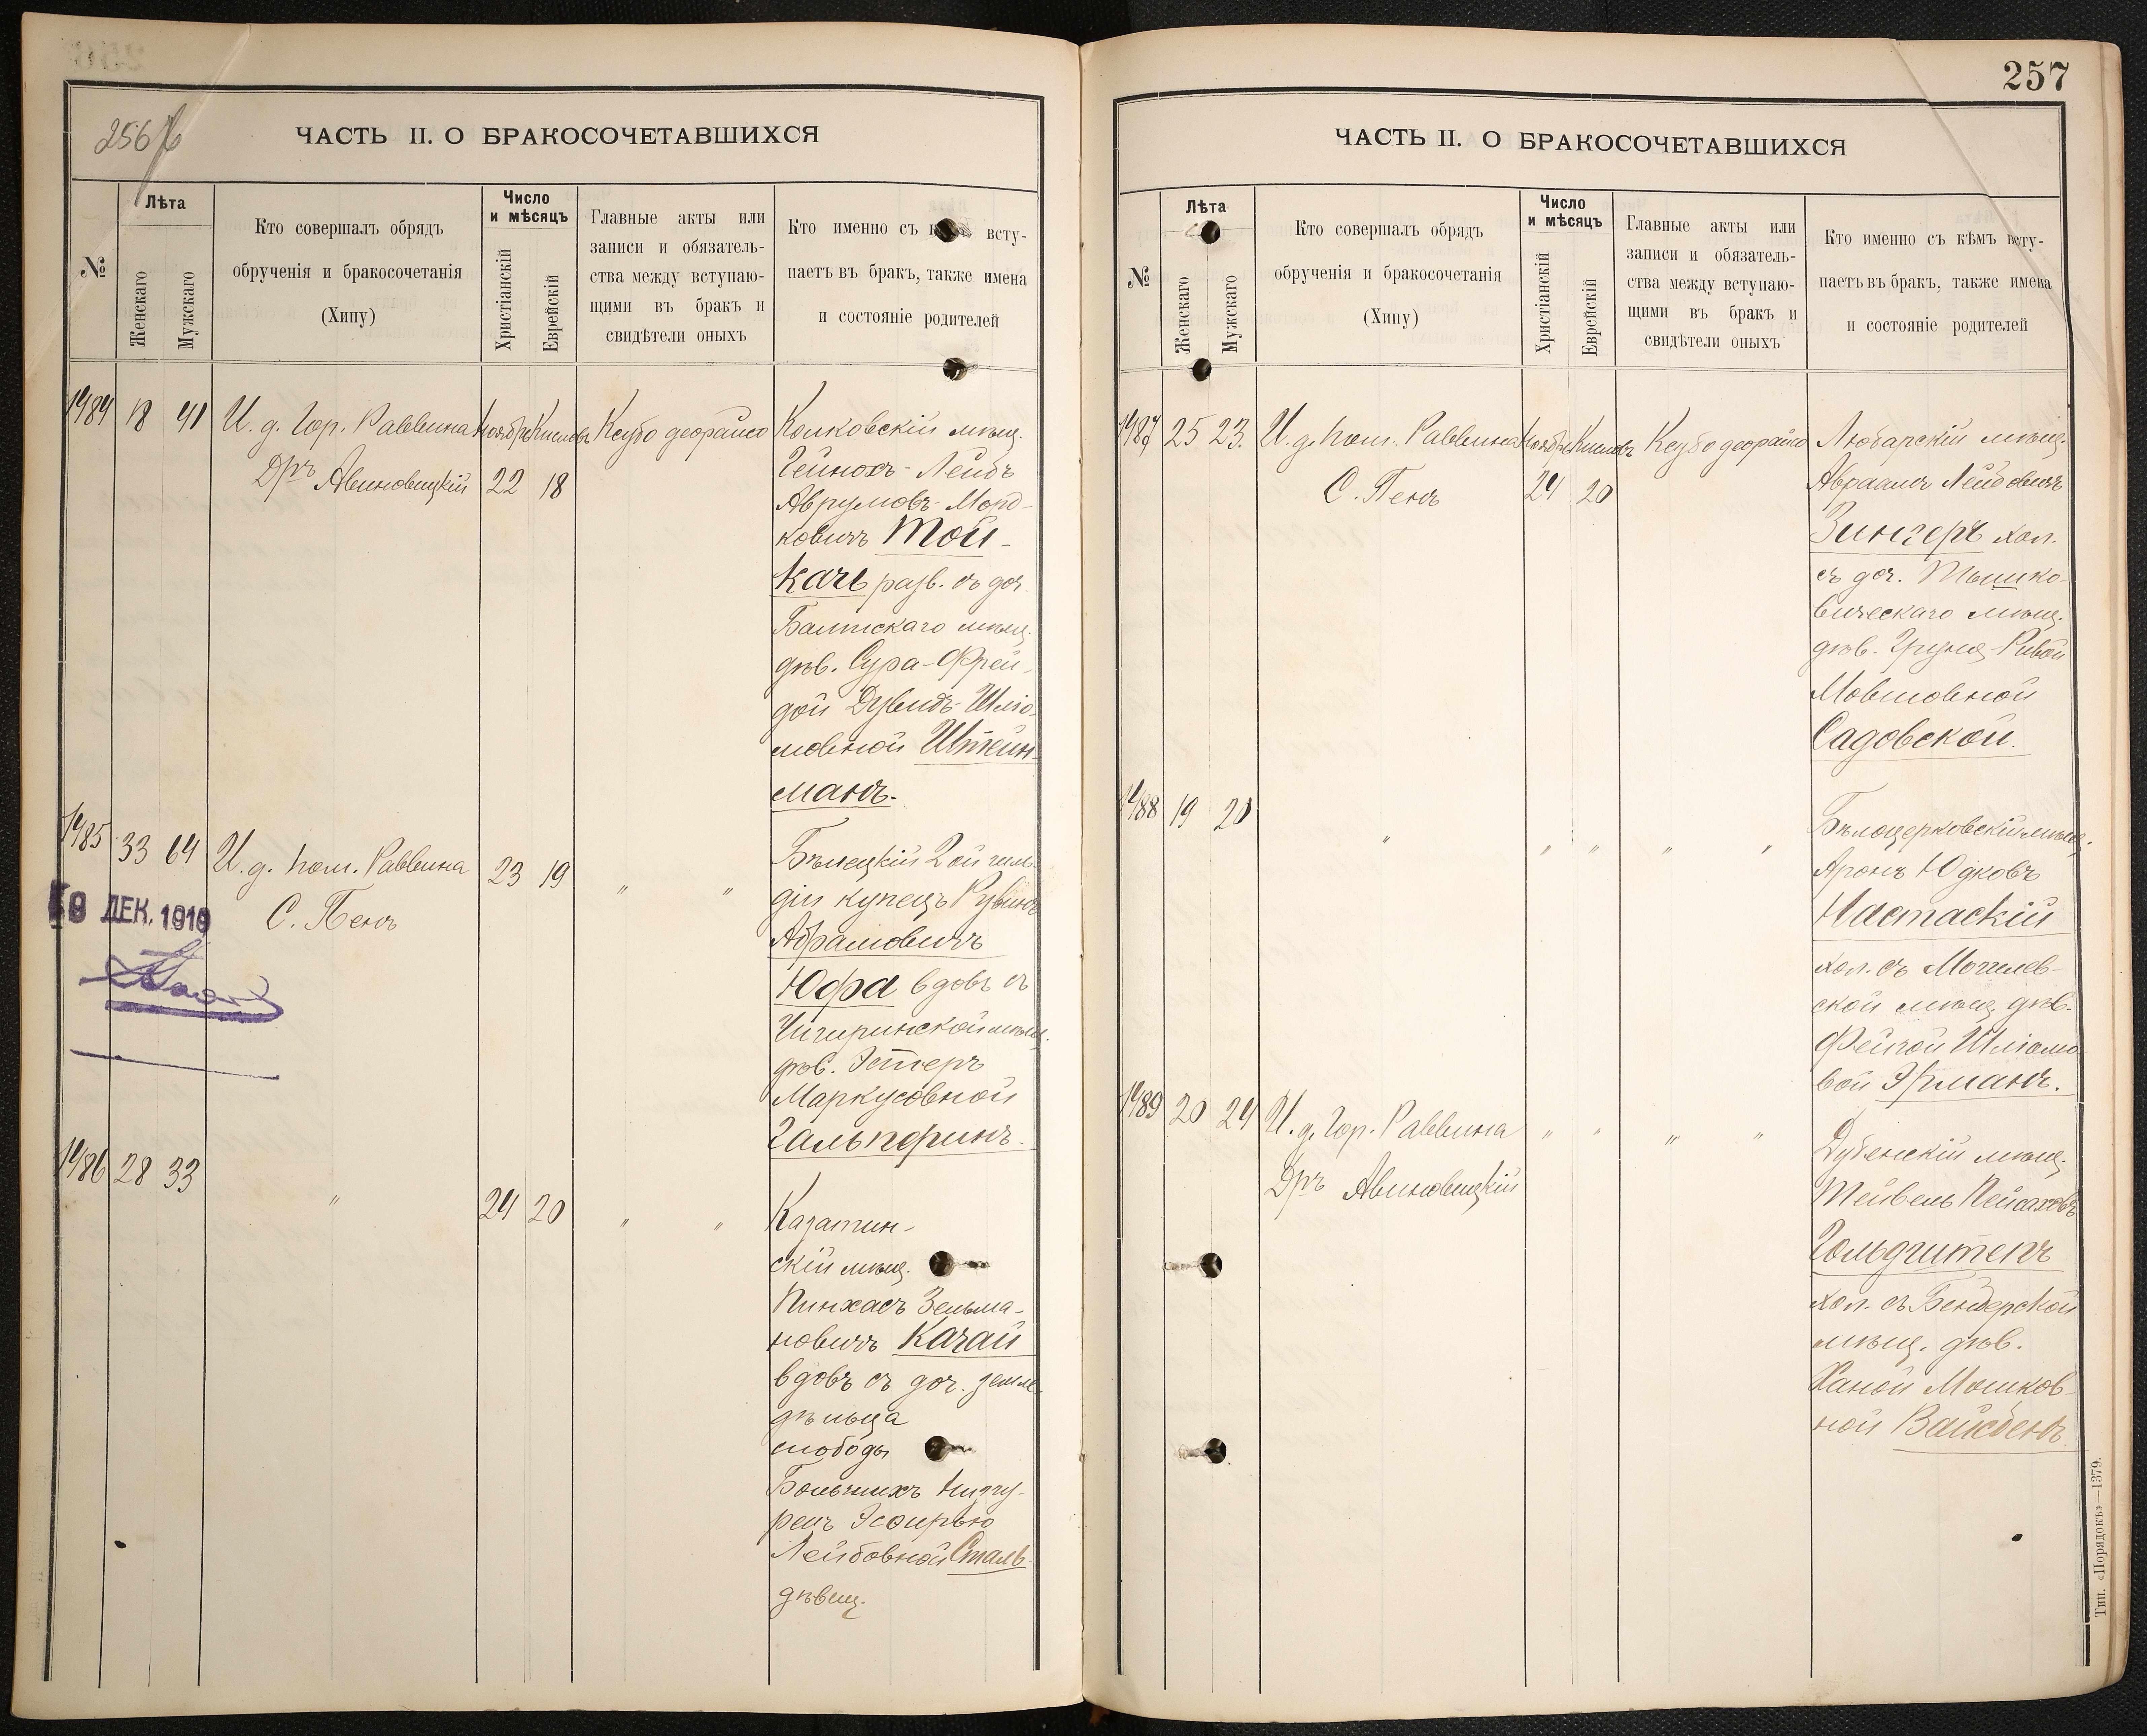 256 б
ЧАСТЬ II. О БРАКОСОЧЕТАВШИХСЯ
№
Лѣта
Женскаго
Мужскаго
Кто совершалъ обрядъ
обрученія и бракосочетанія
(Хипу)
Число
и мѣсяцъ
Христіанскій
Еврейскій
Главные акты или
записи и обязатель-
ства между вступаю-
щими въ бракъ и
свидѣтели оныхъ
Кто именно съ всту-
паетъ въ бракъ, также имена
и состояніе родителей
1484 18 41 И. д. Гор. Раввина Ноябрь Кислевъ Ксубо деорайсо
Дръ Авиновицкій 22 18
Колковскій мѣщ.
Гейнохъ-Лейбъ
Аврумовъ-Морд-
ковичъ Той-
качъ разв. съ доч.
Балтскаго мѣщ.
дѣв. Сура-Фрей-
дой Дувидъ-Шліо-
мовной Штейн-
манъ.
1485 33 64 И. д. пом. Раввина 23 19 " "
С. Пенъ
19 ДЕК. 1910
Бѣлецкій 2ой гиль-
діи купецъ Рувинъ
Абрамовичъ
Юфа вдовъ съ
Чигиринской мѣщ.
дѣв. Эстеръ
Маркусовной
Гальперинъ.
1486 28 33 " 24 20 " "
Казатин-
скій мѣщ.
Пинхасъ Зельма-
новичъ Качай
вдовъ съ доч. земле-
дѣльца
слободы
Больчихъ
Эсѳирью
Лейбовной Сталь
дѣвиц.
257
ЧАСТЬ II. О БРАКОСОЧЕТАВШИХСЯ
№
Лѣта
Женскаго
Мужскаго
Кто совершалъ обрядъ
обрученія и бракосочетанія
(Хипу)
Число
и мѣсяцъ
Христіанскій
Еврейскій
Главные акты или
записи и обязатель-
ства между вступаю-
щими въ бракъ и
свидѣтели оныхъ
Кто именно съ кѣмъ всту-
паетъ въ бракъ, также имена
и состояніе родителей
1487 25 23. И. д. пом. Раввина Ноябрь Кислевъ Ксубо деорайсо
С. Пенъ 24 20
Любарскій мѣщ.
Авраамъ Лейбовичъ
Зингеръ хол.
съ доч. Мышко-
вическаго мѣщ.
дѣв. Груня-Ривой
Мовшовной
Садовской.
1488 19 20 " " " " "
Бѣлоцерковскій мѣщ.
Аронъ Юдковъ
Настаскій
хол. съ Могилев-
ской мѣщ. дѣв.
Фейгой Шліомо-
вой Эрманъ.
1489 20 24 И. д. Гор. Раввина " " " "
Дръ Авиновицкій
Дубенскій мѣщ.
Тейвель Пейсаховъ
Гольдштепъ
хол. съ Бендерской
мѣщ. дѣв.
Ханой Мошков-
ной Вайсбенъ
Тип. «Порядокъ»—1379.